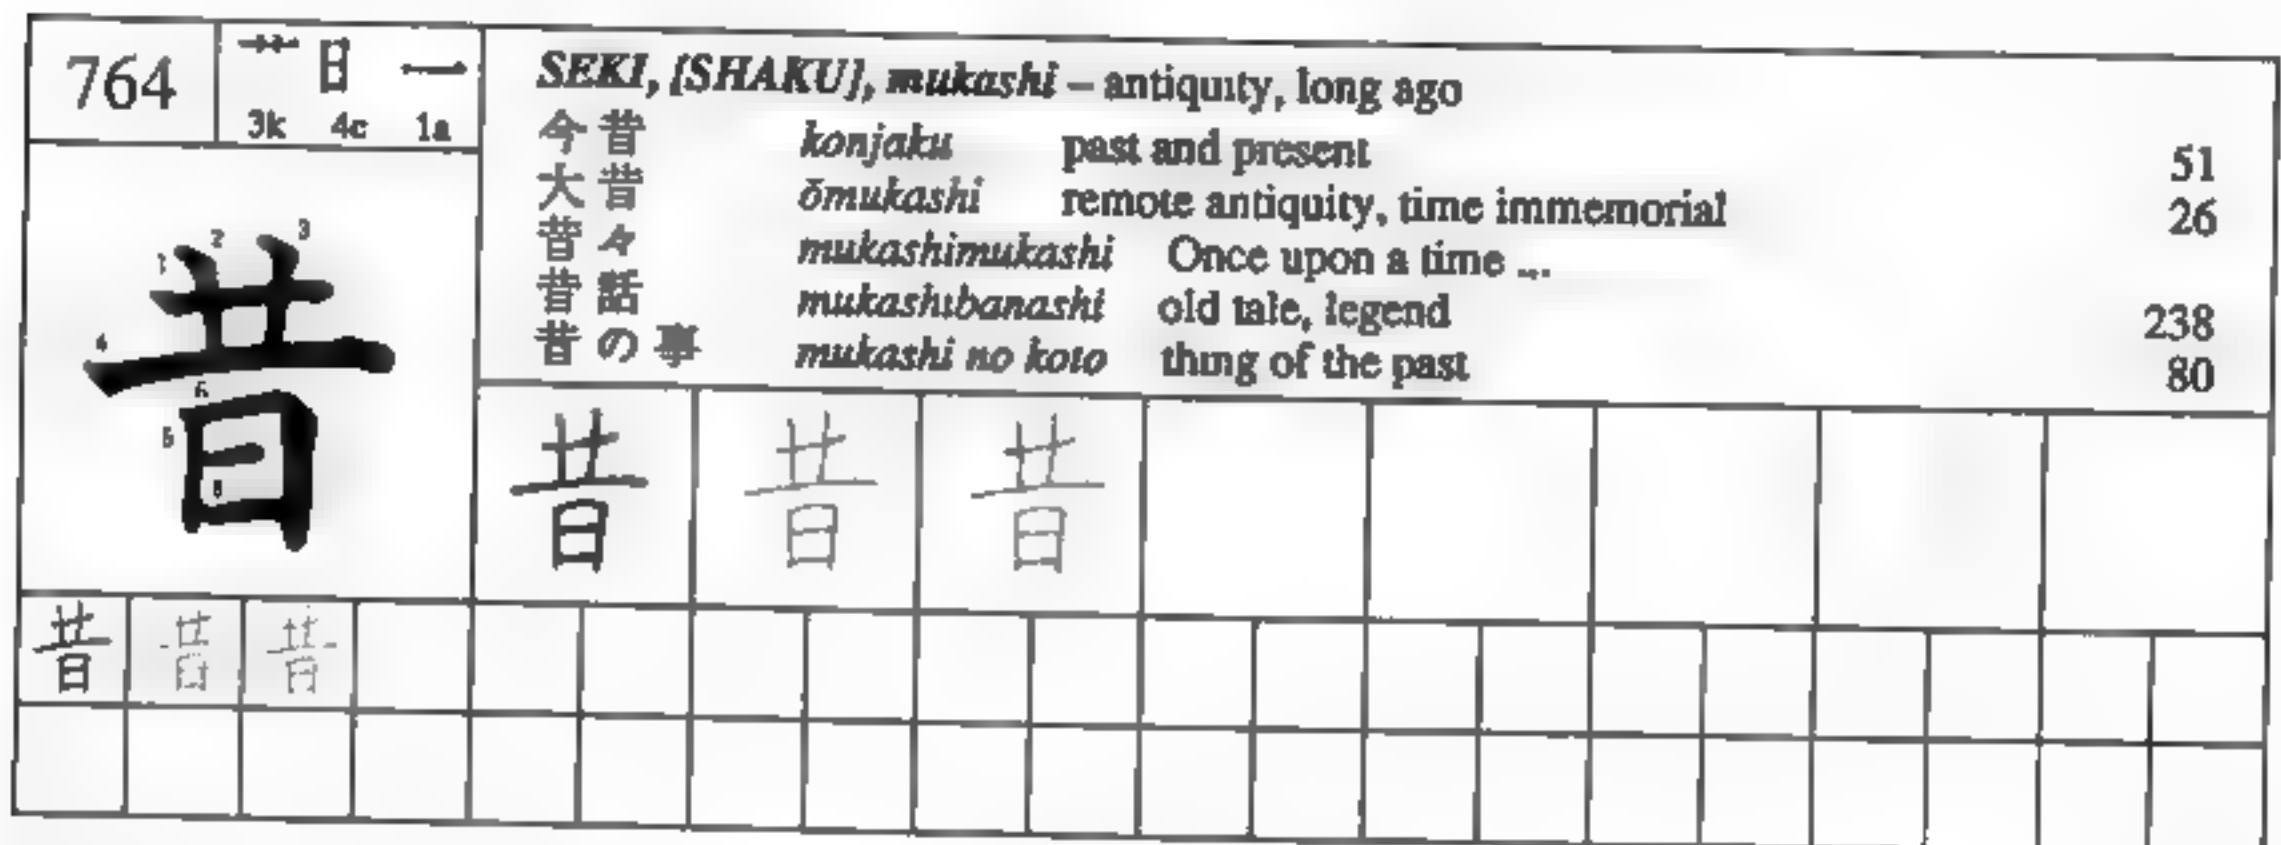 764
艹 日 一
3k 4c 1a
SEKI, [SHAKU], mukashi – antiquity, long ago
今昔 konjaku past and present 51
大昔 ōmukashi remote antiquity, time immemorial 26
昔々 mukashimukashi Once upon a time ...
昔話 mukashibanashi old tale, legend 238
昔の事 mukashi no koto thing of the past 80
1 2 3
4
昔
6
5
8
昔 昔 昔
昔 昔 昔